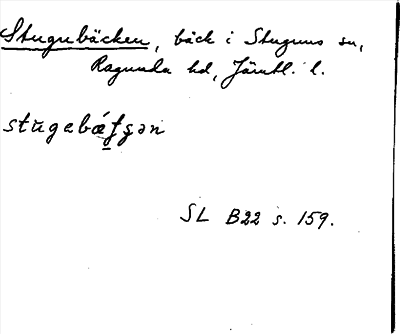 Stugubäcken, bäck i Stuguns sn,
Ragunda hd, Jämtl. l.
stŭgebǽ̱ʄʂən
SL B22 s. 159.